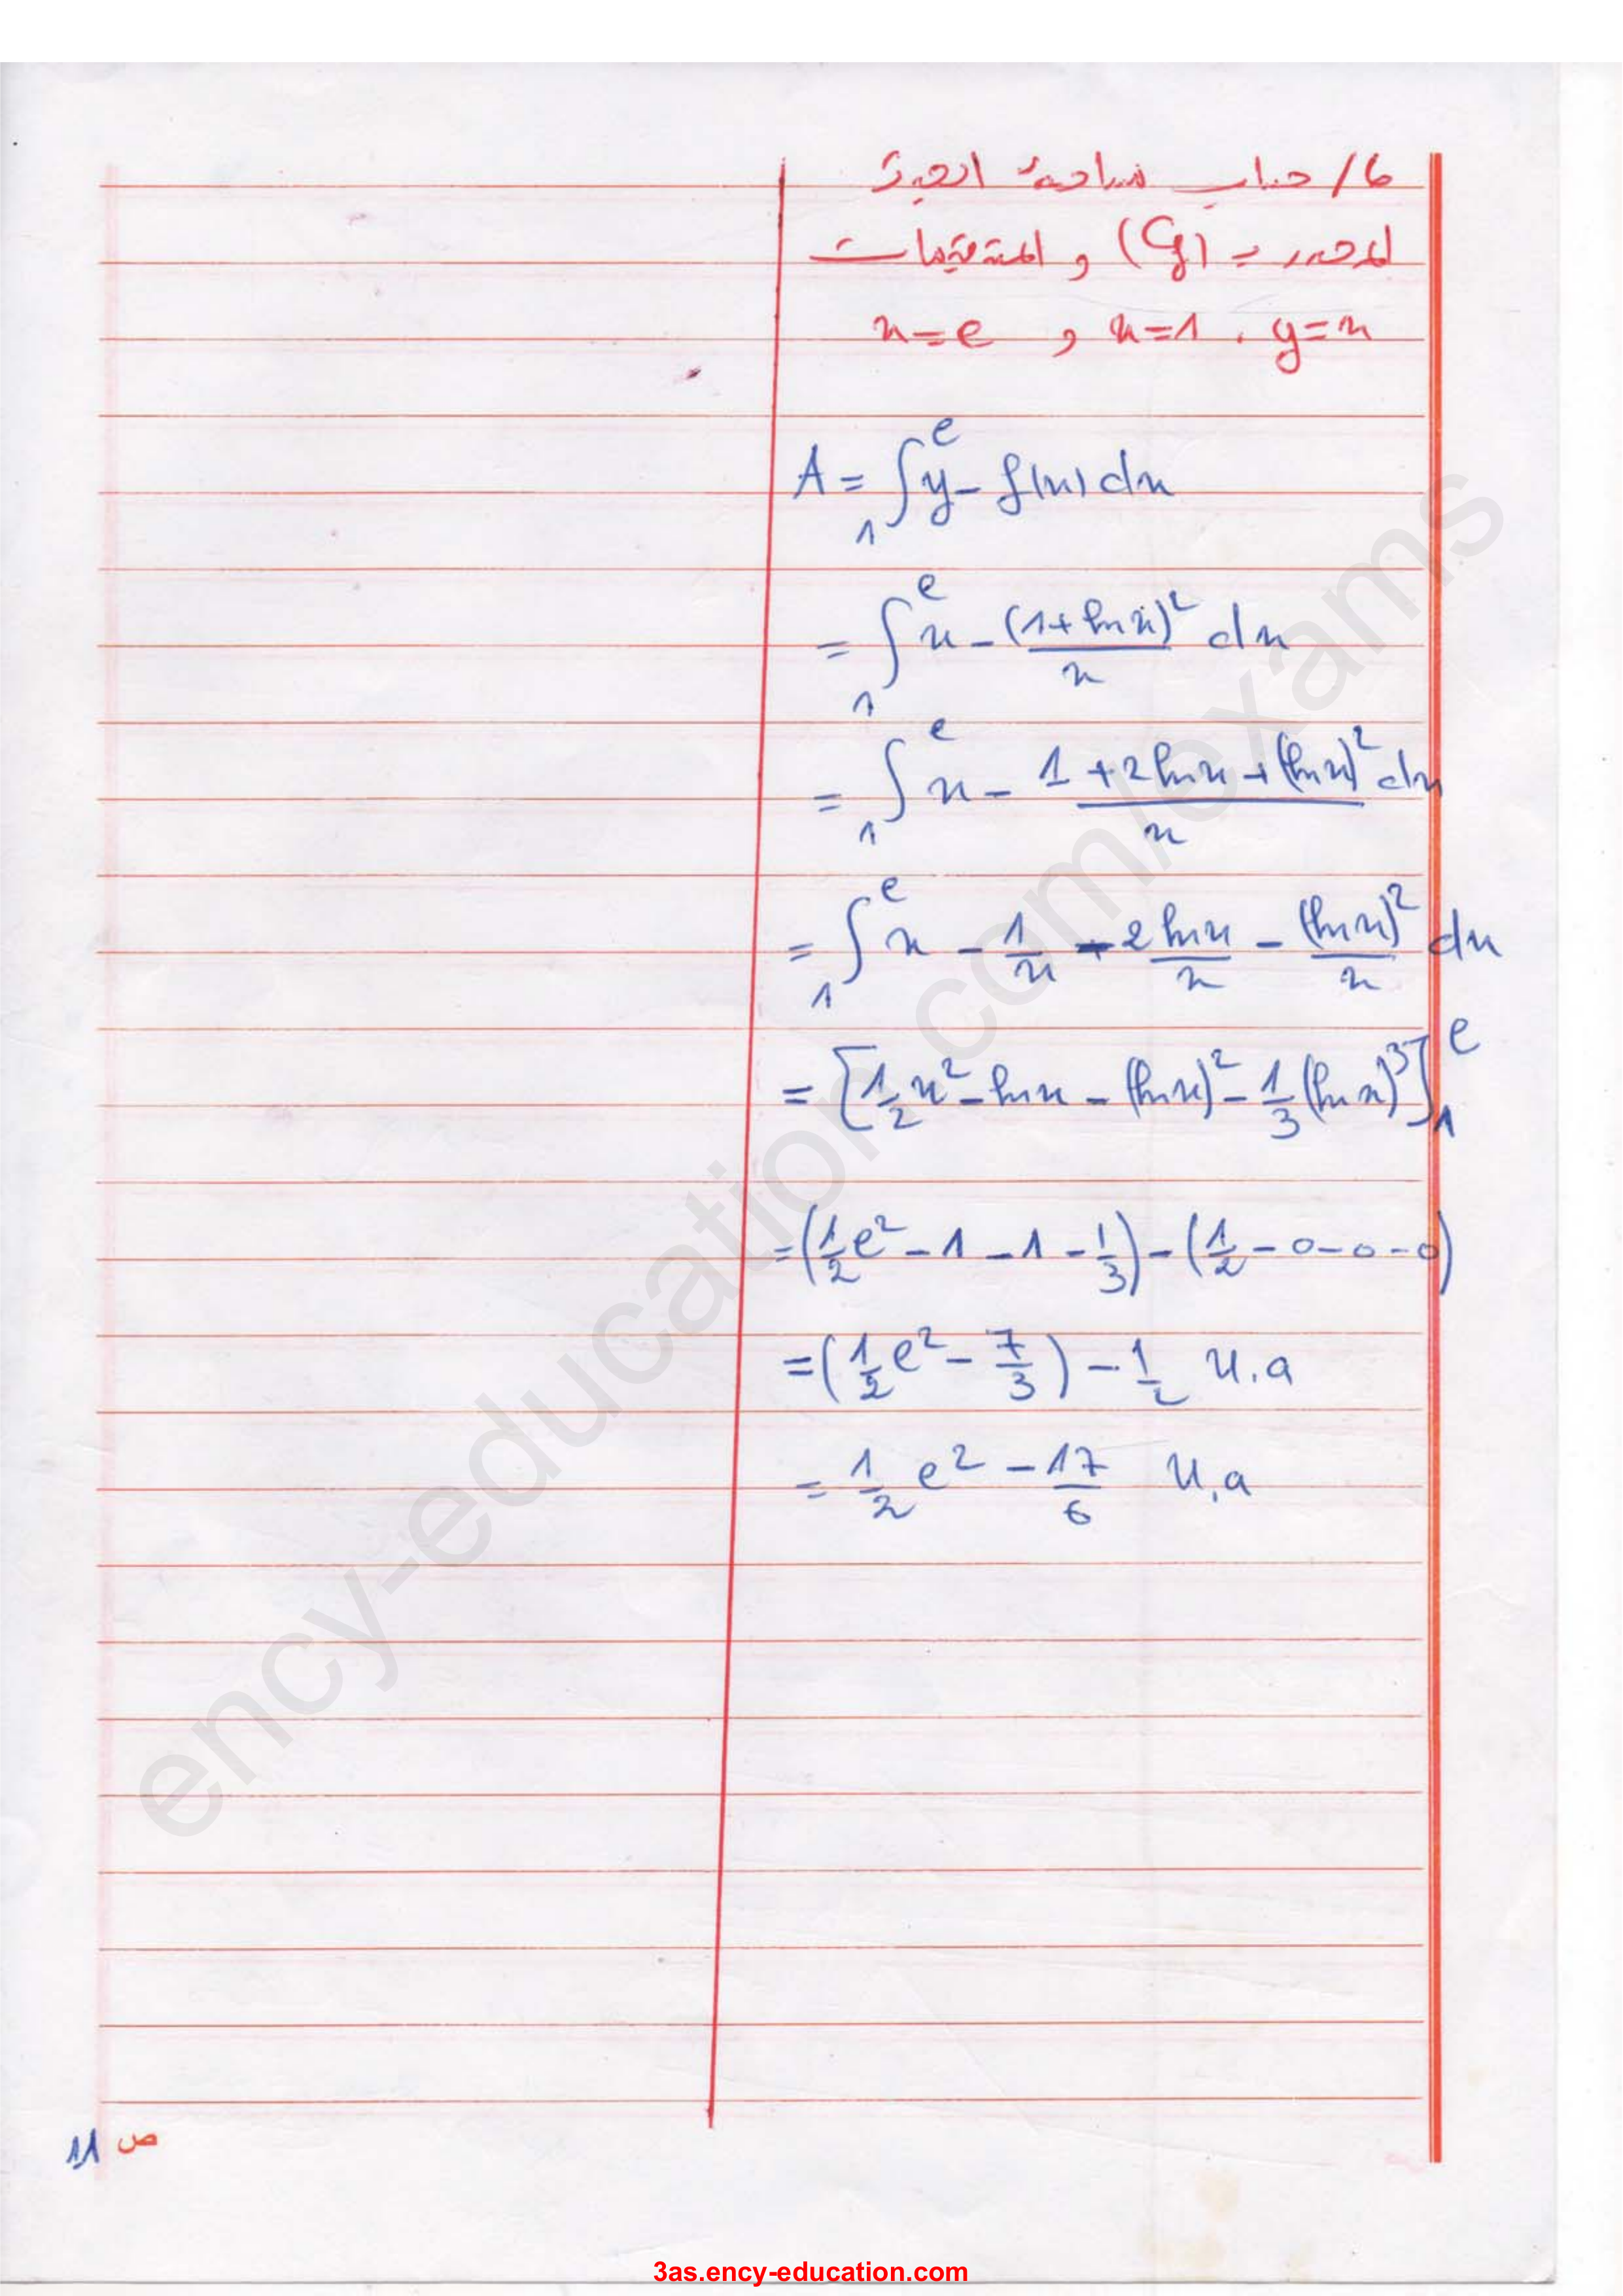 6/ حساب مساحة الحيز
المحدد بـ (Cf) و المستقيمات
y=x ، x=1 و x=e
A = ∫₁ᵉ y - f(x) dx
= ∫₁ᵉ x - (1+ln x)²/x dx
= ∫₁ᵉ x - (1+2ln x+(ln x)²)/x dx
= ∫₁ᵉ x - 1/x - 2 ln x/x - (ln x)²/x dx
= [1/2 x² - ln x - (ln x)² - 1/3 (ln x)³]₁ᵉ
= (1/2 e² - 1 - 1 - 1/3) - (1/2 - 0 - 0 - 0)
= (1/2 e² - 7/3) - 1/2 u.a
= 1/2 e² - 17/6 u.a
ص 11
ency-education.com/exams
3as.ency-education.com